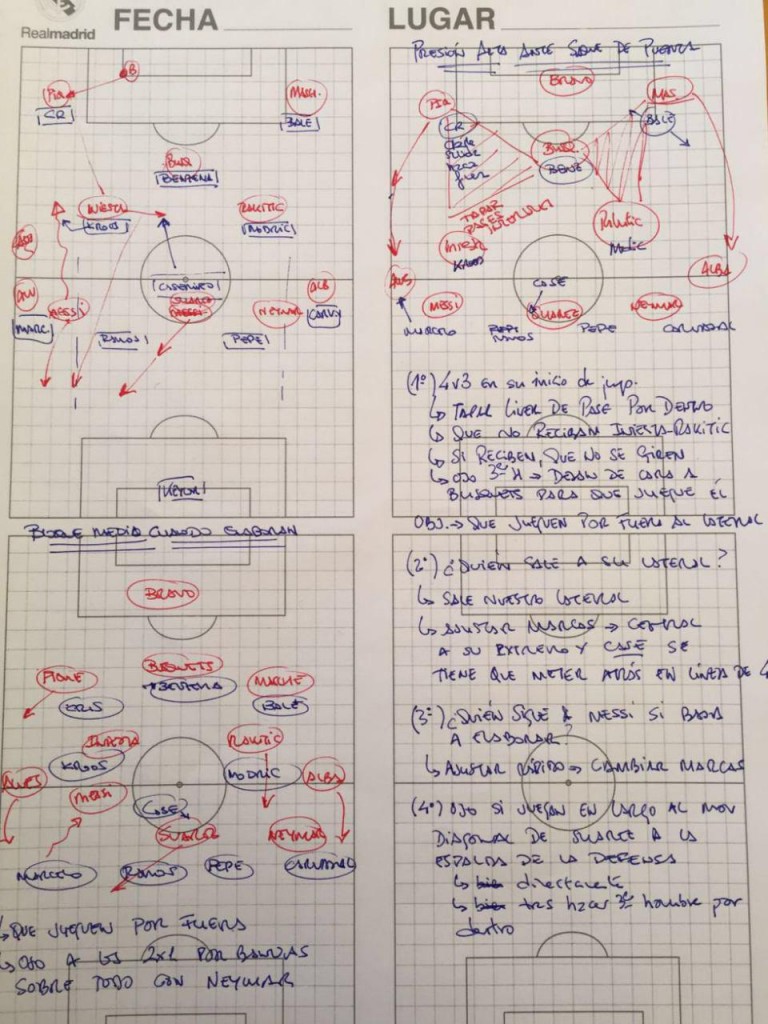 Realmadrid
FECHA
B
PIQUE
CR
MASCH.
BALE
BUSQ
BENZEMA
INIESTA
KROOS
RAKITIC
MODRIC
CASEMIRO
SUAREZ
MESSI
NEYMAR
ALB
MARC
CARVJ
RAMOS
PEPE
KEYLOR
BLOQUE MEDIO CUANDO ELABORAN
BRAVO
PIQUE
BUSQUETS
BENZEMA
MASCHE
CRIS
BALE
INIESTA
KROOS
RAKITIC
MODRIC
ALVES
MESSI
CASE
ALBA
SUAREZ
NEYMAR
MARCELO
RAMOS
PEPE
CARVAJAL
QUE JUEGUEN POR FUERA
OJO A LOS 2x1 POR BANDAS
SOBRE TODO CON NEYMAR
LUGAR
PRESIÓN ALTA ANTE SAQUE DE PUERTA
BRAVO
PIQ
MAS
CR
BALE
BUSQ
BENZE
TAPAR
PASES
INTERIORES
INIESTA
KROOS
Rakitic
Modric
ALVES
ALBA
MESSI
CASE
SUAREZ
NEYMAR
MARCELO
RAMOS
PEPE
CARVAJAL
(1º) 4v3 en su inicio de juego.
TAPAR LÍNEA DE PASE POR DENTRO
QUE NO RECIBAN INIESTA-RAKITIC
SI RECIBEN, QUE NO SE GIREN
OJO 3er H → DEJAN DE CARA A
BUSQUETS PARA QUE JUEGUE ÉL
OBJ. → QUE JUEGUEN POR FUERA AL LATERAL
(2º) ¿QUIÉN SALE A SU LATERAL?
SALE NUESTRO LATERAL
AJUSTAR MARCAS → CENTRAL
A SU EXTREMO Y CASE SE
TIENE QUE METER ATRÁS EN LÍNEA DE 4
(3º) ¿QUIÉN SIGUE A MESSI SI BAJA
A ELABORAR?
AJUSTAR RÁPIDO → CAMBIAR MARCAS
(4º) OJO SI JUEGAN EN LARGO AL MOV
DIAGONAL DE SUAREZ A LA
ESPALDA DE LA DEFENSA
bien directamente
bien tras hacer 3er hombre por
dentro